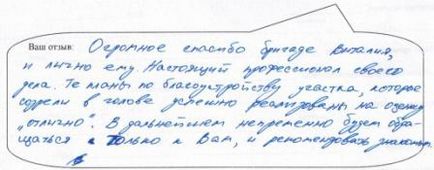 Ваш отзыв: Огромное спасибо бригаде Виталия,
и лично ему. Настоящий профессионал своего
дела. Те планы по благоустройству участка, которые
созрели в голове успешно реализованы на оценку
"отлично". В дальнейшем непременно будем обра-
щаться только к Вам, и рекомендовать знакомым.